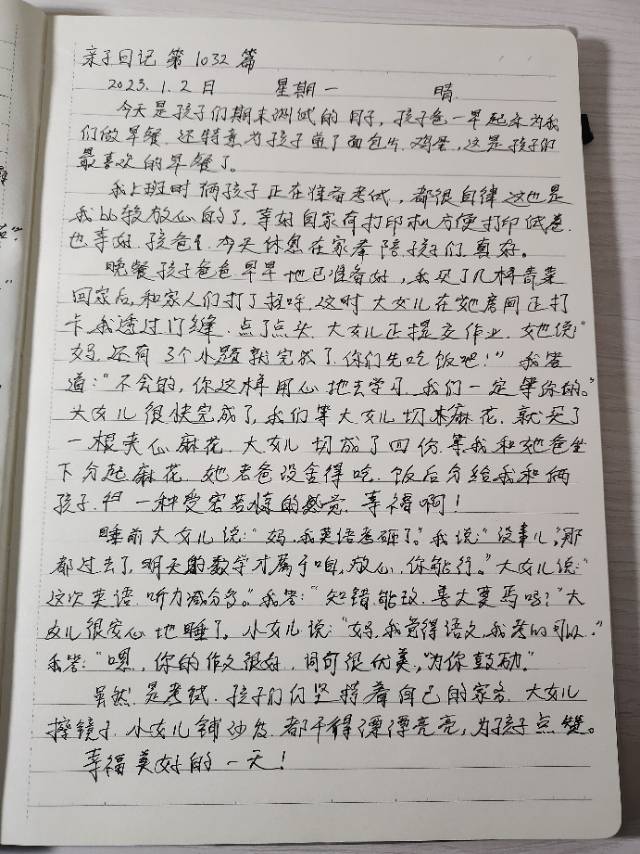 亲子日记 第1032篇
2023.1.2日 星期一 晴
今天是孩子们期末测试的日子，孩子爸一早起来为我
们做早餐，还特意为孩子煎了面包片、鸡蛋，这是孩子们
最喜欢的早餐了。
我上班时俩孩子正在准备考试，都很自律这也是
我比较放心的了，幸好自家有打印机方便打印试卷，
也幸好，孩爸今天休息在家奉陪孩子们真好。
晚餐孩子爸爸早早地已准备好，我买了几样青菜
回家后，和家人们打了招呼，这时大女儿在她房间正打
卡，我透过门缝，点了点头，大女儿正提交作业，她说：“
妈，还有3个小题就完成了，你们先吃饭吧！”我答
道：“不会的，你这样用心地去学习，我们一定等你的。”
大女儿很快完成了，我们等大女儿切麻花，就买了
一根夹心麻花，大女儿切成了四份，等我和她爸坐
下分起麻花，她老爸没舍得吃，饭后分给我和俩
孩子，一种受宠若惊的感觉，幸福啊！
睡前大女儿说：“妈，我英语考砸了。”我说：“没事儿，那
都过去了，明天的数学才属于咱，放心，你能行。”大女儿说：“
这次英语，听力减分多。”我答：“知错能改，善大莫焉吗？”大
女儿很安心地睡了。小女儿说：“妈，我觉得语文，我考的可以。”
我答：“嗯，你的作文很好，词句很优美，”为你鼓劲。”
虽然是考试，孩子们们坚持着自己的家务，大女儿
擦镜子，小女儿铺沙发，都干得漂漂亮亮，为孩子点赞。
幸福美好的一天！